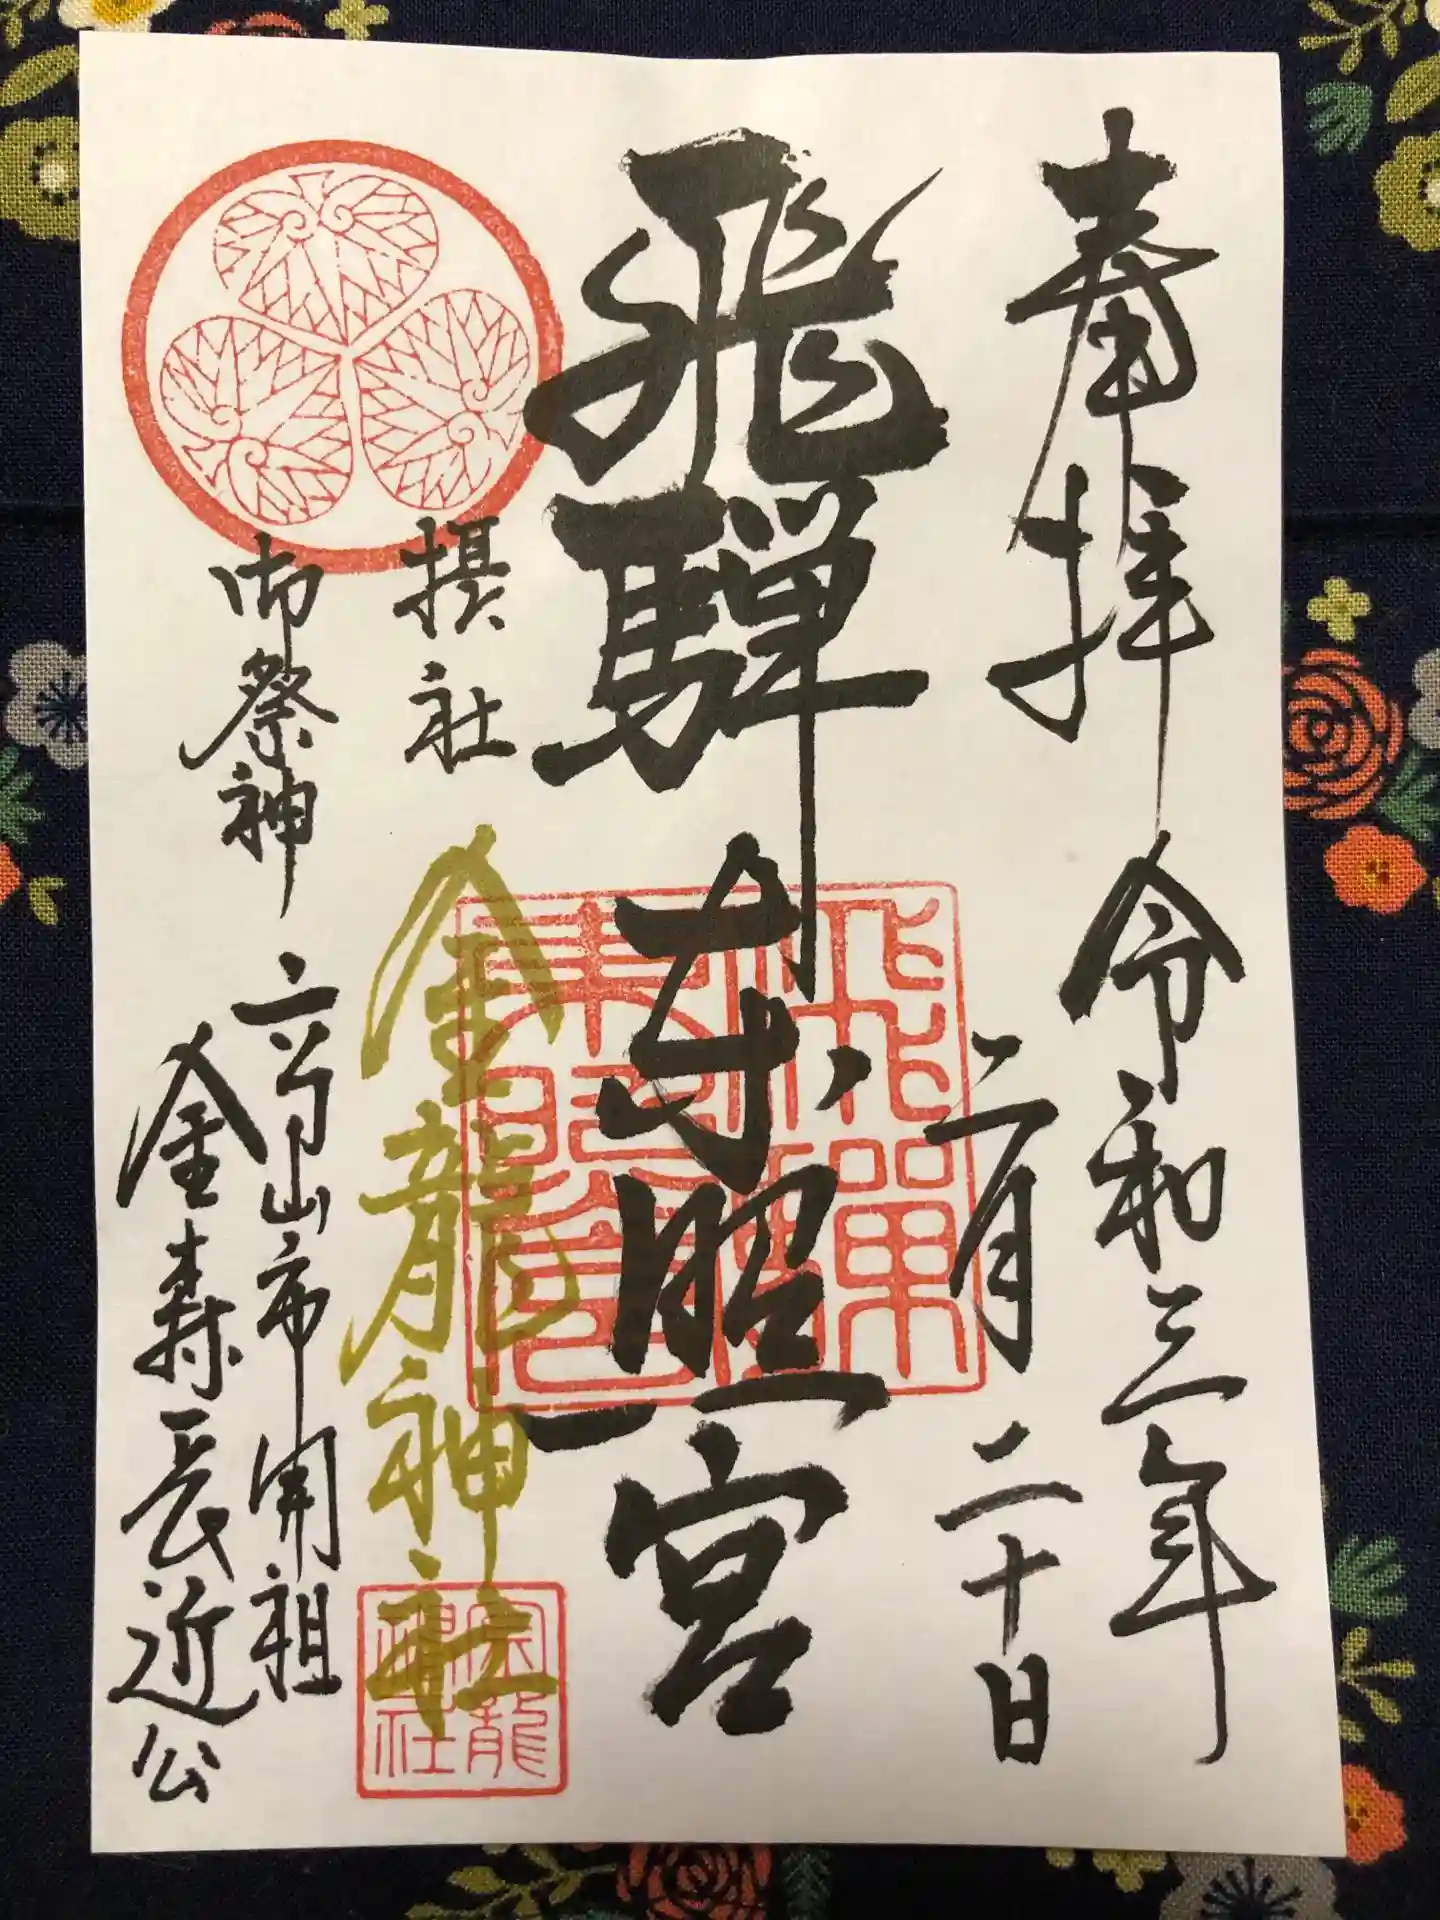 奉拝
令和三年
二月二十日
飛騨東照宮
飛騨東照宮
摂社
金龍神社
金龍神社
御祭神
高山市開祖
金森長近公